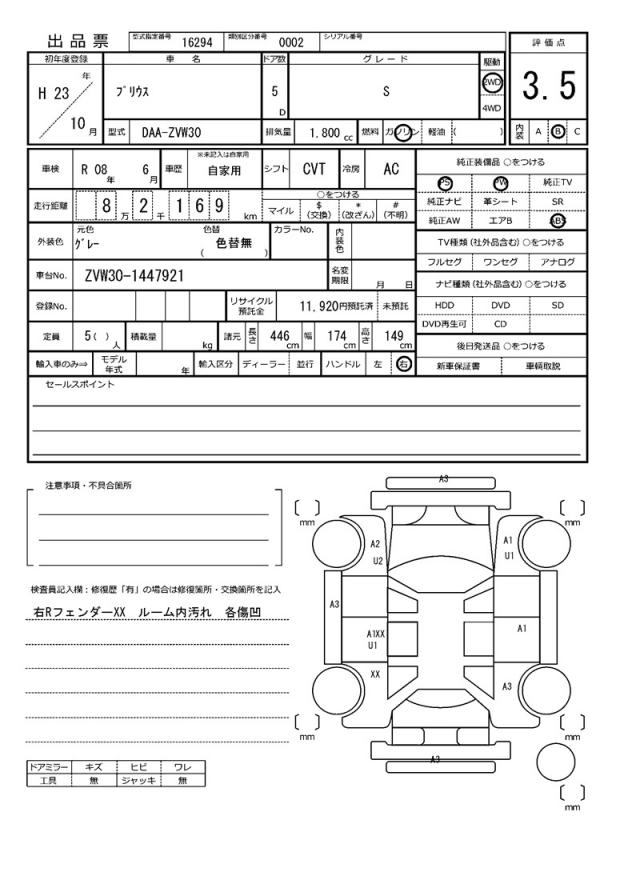 出品票 型式指定番号 16294 類別区分番号 0002 シリアル番号
評価点
3.5
内装 A B C
初年度登録 車名 ドア数 グレード 駆動
H 23 年 10 月 プリウス 5 D S 2WD 4WD
型式 DAA-ZVW30 排気量 1,800 cc 燃料 ガソリン 軽油 ( )
車検 R 08 年 6 月 車歴 ※未記入は自家用 自家用 シフト CVT 冷房 AC
走行距離 8 万 2 千 1 6 9 km
○をつける
マイル $ (交換) * (改ざん) # (不明)
外装色 元色 グレー 色替 ( 色替無 ) カラーNo. 内装色
車台No. ZVW30-1447921 名変期限 月 日
登録No. リサイクル預託金 11,920円預託済 未預託
定員 5 ( ) 人 積載量 kg 諸元 長さ 446 cm 幅 174 cm 高さ 149 cm
輸入車のみ⇒ モデル年式 年 輸入区分 ディーラー 並行 ハンドル 左 右
純正装備品 ○をつける
PS PW 純正TV
純正ナビ 革シート SR
純正AW エアB ABS
TV種類 (社外品含む) ○をつける
フルセグ ワンセグ アナログ
ナビ種類 (社外品含む) ○をつける
HDD DVD SD
DVD再生可 CD
後日発送品 ○をつける
新車保証書 車輌取説
セールスポイント
注意事項・不具合箇所
検査員記入欄：修復歴「有」の場合は修復箇所・交換箇所を記入
右RフェンダーXX ルーム内汚れ 各傷凹
ドアミラー キズ ヒビ ワレ
工具 無 ジャッキ 無
A3
[ ] mm
[ ] mm
A2
U2
A1
U1
A3
A1XX
U1
A1
XX
A3
[ ] mm
[ ] mm
A3
[ ] mm